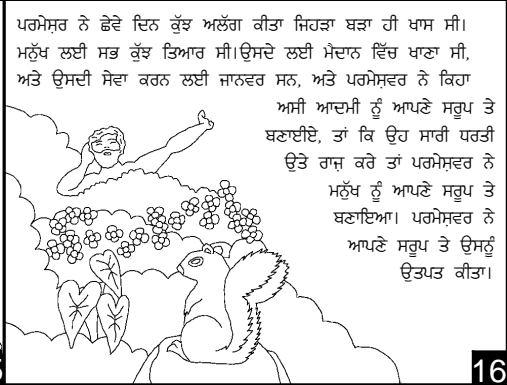 ਪਰਮੇਸ਼ਰ ਨੇ ਛੇਵੇ ਦਿਨ ਕੁੱਝ ਅਲੱਗ ਕੀਤਾ ਜਿਹੜਾ ਬੜਾ ਹੀ ਖਾਸ ਸੀ।
ਮਨੁੱਖ ਲਈ ਸਭ ਕੁੱਝ ਤਿਆਰ ਸੀ।ਉਸਦੇ ਲਈ ਮੈਦਾਨ ਵਿੱਚ ਖਾਣਾ ਸੀ,
ਅਤੇ ਉਸਦੀ ਸੇਵਾ ਕਰਨ ਲਈ ਜਾਨਵਰ ਸਨ, ਅਤੇ ਪਰਮੇਸ਼ਵਰ ਨੇ ਕਿਹਾ
ਅਸੀ ਆਦਮੀ ਨੂੰ ਆਪਣੇ ਸਰੂਪ ਤੇ
ਬਣਾਈਏ, ਤਾਂ ਕਿ ਉਹ ਸਾਰੀ ਧਰਤੀ
ਉਤੇ ਰਾਜ਼ ਕਰੇ ਤਾਂ ਪਰਮੇਸ਼ਵਰ ਨੇ
ਮਨੁੱਖ ਨੂੰ ਆਪਣੇ ਸਰੂਪ ਤੇ
ਬਣਾਇਆ। ਪਰਮੇਸ਼ਵਰ ਨੇ
ਆਪਣੇ ਸਰੂਪ ਤੇ ਉਸਨੂੰ
ਉਤਪਤ ਕੀਤਾ।
16